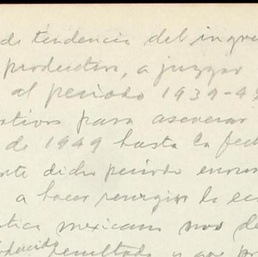 de tendencia del ingre
productivo, a juzgar
al período 1939-49
otivos para aseverar
de 1949 hasta la fech
nte dicho período
a hacer resurgir la ec
tica mexicana nos de
resultado